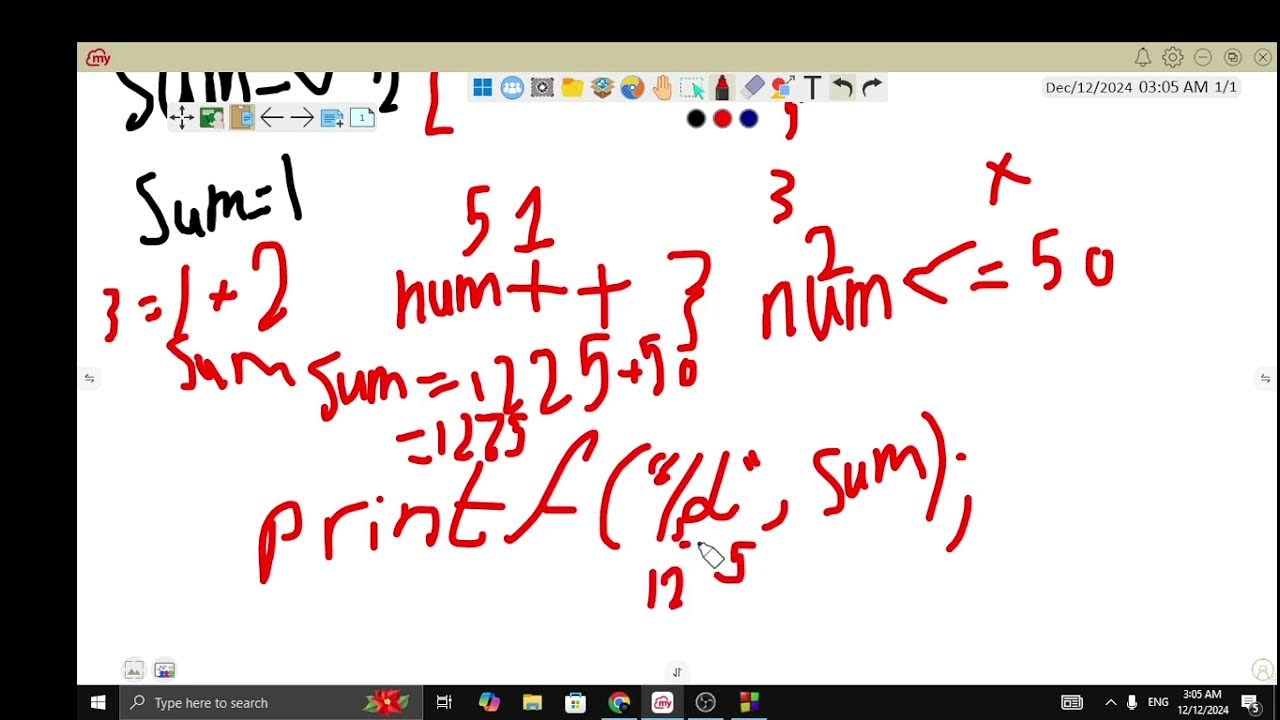 my
Dec/12/2024 03:05 AM 1/1
T
1
Sum=1
5 1
3
x
3 = 1 + 2
num++ }
2
num <= 50
Sum
Sum = 1225+50
= 1275
printf("%d", sum);
12 5
Type here to search
ENG
3:05 AM
12/12/2024
5